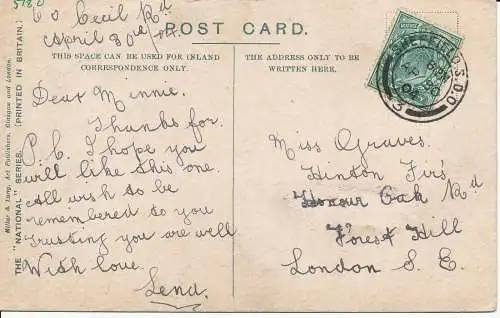 5720
60 Cecil Rd
April 30th /04.
POST CARD.
THIS SPACE CAN BE USED FOR INLAND
CORRESPONDENCE ONLY.
THE ADDRESS ONLY TO BE
WRITTEN HERE.
Dear Minnie.
Thanks for.
P.C. I hope you
will like this one.
All wish to be
remembered to you
Trusting you are well
With love.
Lena.
Miss Graves.
Hinton Firs
Honour Oak Rd
Forest Hill
London S. E.
SHEFFIELD S.D.O
3
Millar & Lang, Art Publishers, Glasgow and London.
THE "NATIONAL" SERIES. (PRINTED IN BRITAIN)